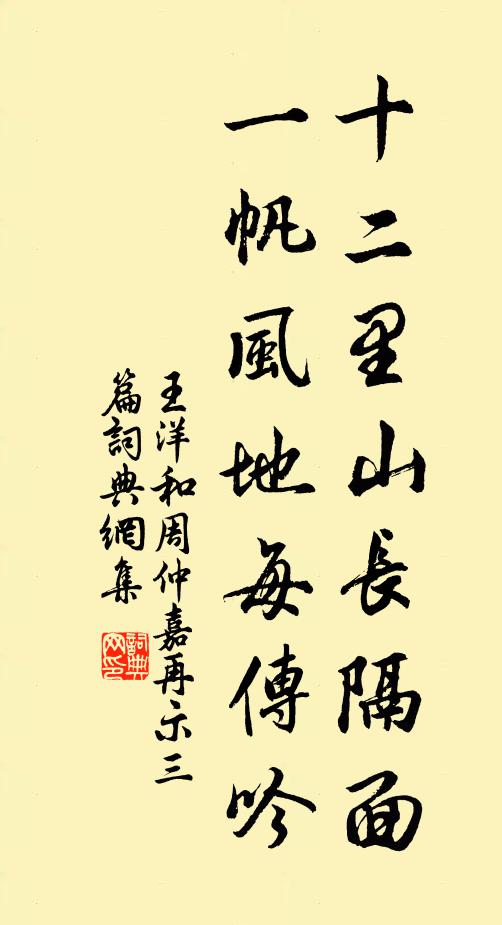 十二里山長隔面
一帆風地每傳吟
王洋和周仲嘉再示三
篇詞典網集
詞典網印